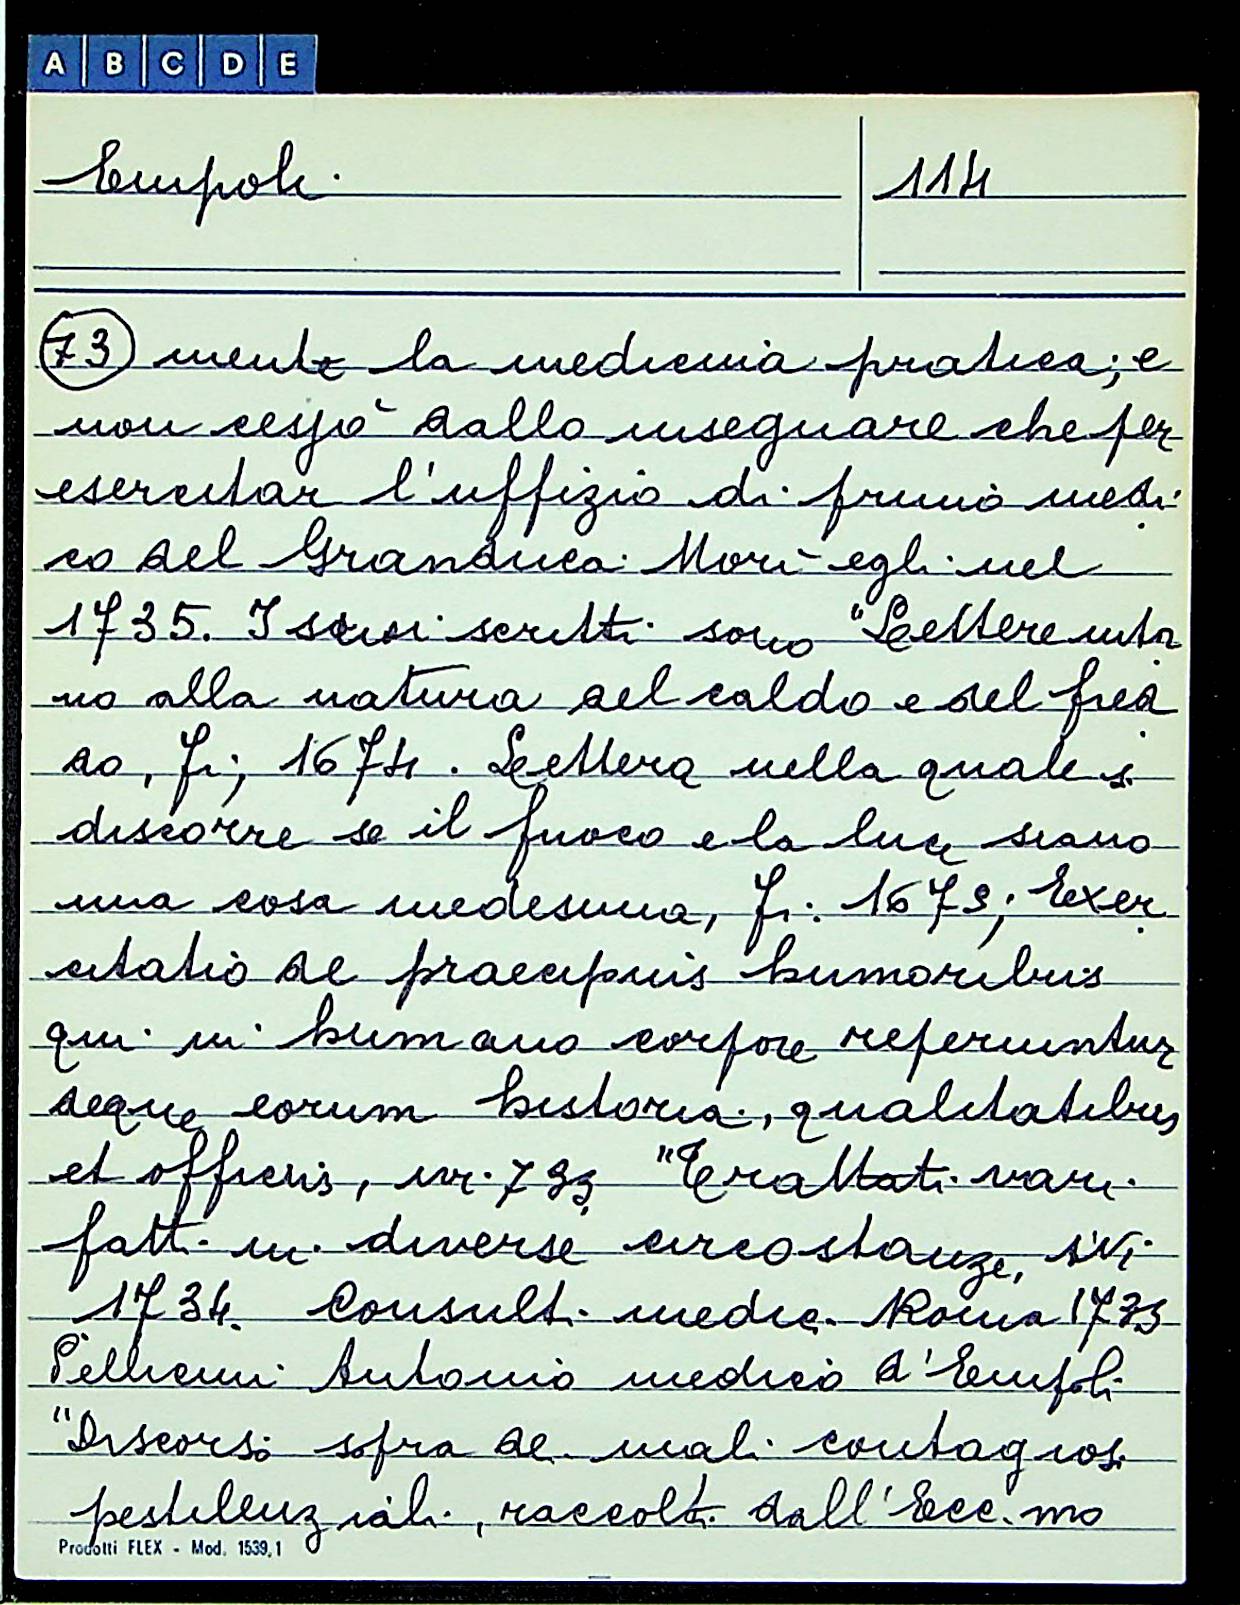 A B C D E
Empoli.
114
73 mente la medicina pratica; e
non cessò dallo insegnare che per
esercitar l'uffizio di primo medi-
co del Granduca. Morì egli nel
1735. I suoi scritti sono "Lettere into
no alla natura del caldo e del fred
do, Fi; 1674. Lettera nella quale si
discorre se il fuoco e la luce siano
una cosa medesima, Fi: 167; Exer
citatio de praecipuis humoribus
qui in humano corpore reperiuntur
deque eorum historia, qualitatibus
et officiis, "Trattati vari
fatti in diverse circostanze, ivi
1734. Consulti medici. Roma 1733
Pellicini Antonio medico d'Empoli
"Discorsi sopra de mali contagiosi
pestilenziali, raccolti dall'Ecc.mo
Prodotti FLEX - Mod. 1539,1